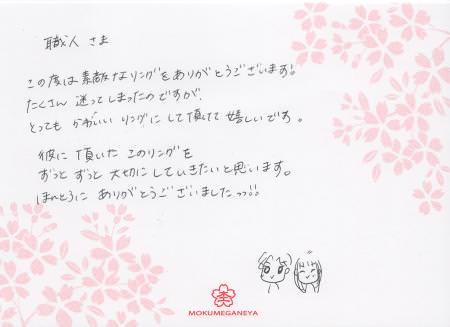 職人 さま
この度は素敵なリングをありがとうございます!!
たくさん 迷ってしまったのですが、
とっても かわいい リングに して頂けて 嬉しいです。
彼に 頂いた このリングを
ずっと ずっと 大切にしていきたいと思います。
ほんとうに ありがとうございましたっっ!!
MOKUMEGANEYA